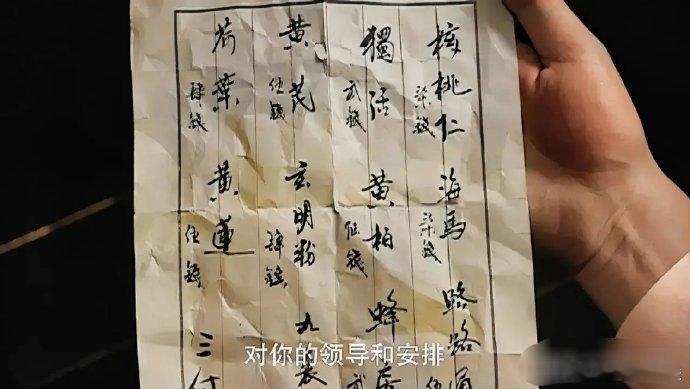 核桃仁 柒錢 海馬 柒錢 路路通 伍
獨活 貳錢 黄柏 伍錢 蜂房
黄芪 伍錢 玄明粉 肆錢 九
荷葉 肆錢 黄連 伍錢 三付
对你的领导和安排